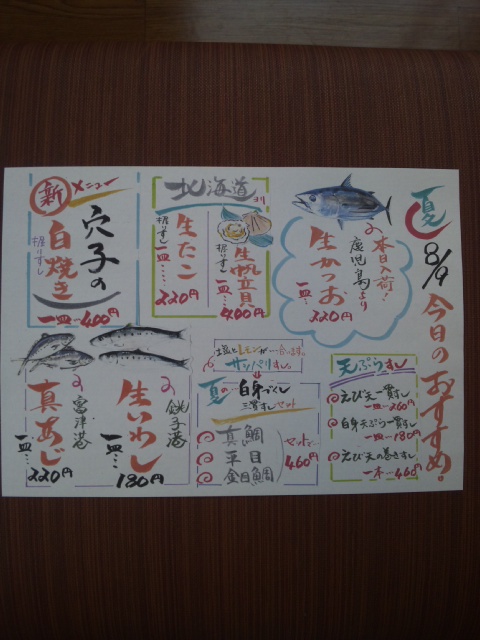 夏
8/9
今日のおすすめ。
本日入荷！
鹿児島より
生かつお
一皿…220円
北海道より
生帆立貝
握りずし
一皿…400円
生たこ
握りずし
一皿…220円
新メニュー
穴子の
白焼き
握りずし
一皿…400円
天ぷらすし
えび天一貫すし
一皿…260円
白身天ぷら一貫すし
一皿…180円
えび天の巻きすし
一本…460円
塩とレモンが合います。
サッパリすし。
夏の白身づくし
三貫すしセット
真鯛
平目
金目鯛
セットで…
460円
銚子港
生いわし
一皿…180円
富津港
真あじ
一皿…220円